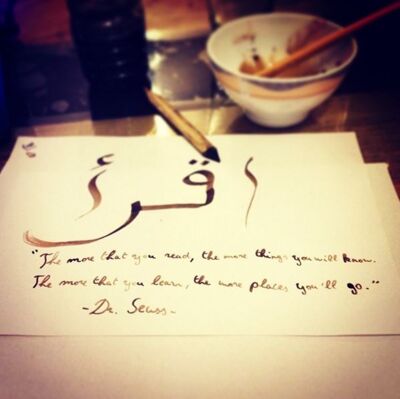 اقرأ
"The more that you read, the more things you will know.
The more that you learn, the more places you'll go."
- Dr. Seuss -